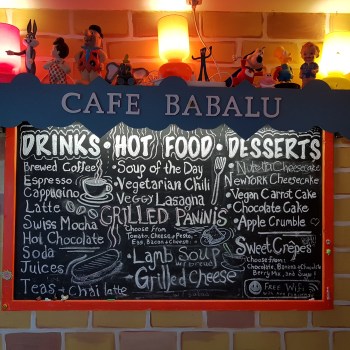 CAFE BABALU
DRINKS • HOT FOOD • DESSERTS
Brewed Coffee
Espresso
Cappuccino
Latte
Swiss Mocha
Hot Chocolate
Soda
Juices
Teas + Chai latte
• Soup of the Day
• Vegetarian Chili
Veggy Lasagna
GRILLED PANINIS
Choose From:
Tomato, Cheese & Pesto
Egg, Bacon & Cheese
• Lamb Soup
Grilled Cheese
• Nutella Cheesecake
• NEWYORK Cheesecake
• Vegan Carrot Cake
• Chocolate Cake
• Apple Crumble
Sweet Crêpes
Choose from:
Chocolate, Banana & Chocolate
Berry Mix, and Sugar!
FREE WiFi